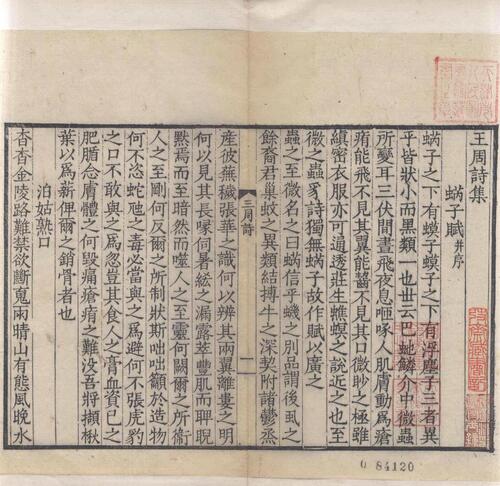 王周詩集
蜹子賦并序
蜹子之下有蟆子蟆子之下有浮塵子三者異
乎皆狀小而黑類一也丗云巴虵鱗介中微蟲
所變耳三伏間晝飛夜息咂啄人肌膚動爲瘡
痏能飛不見其翼能齧不見其口微眇之極雖
縝密衣服亦可通透莊生蟭螟之說近之也至
微之蟲豸詩獨無蜹子故作賦以廣之
蟲之至微名之曰蜹信乎蠛之別品謂後虱之
餘裔君巢蚊之異類結搏牛之深契附諸鬱蒸
三周詩 一
産彼無穢張華之識何以辨其兩翼離婁之明
何以見其長喙伺暑綌之漏露萃豐肌而聊睨
黙焉而至暗然而噬人之至靈何闕爾之所衛
人之至剛何反爾之所制狀斯咄咄顓於造物
何不恣蛇虺之毒必當與之爲避何不張虎豹
之口不敢與之爲忽豈其食人之膏血資已之
肥腯忿膚體之何毀痛瘡痏之難没吾將擷楸
葉以爲薪俾爾之銷骨者也
泊姑熟口
杳杳金陵路難禁欲斷䰟雨晴山有態風晚水
084120